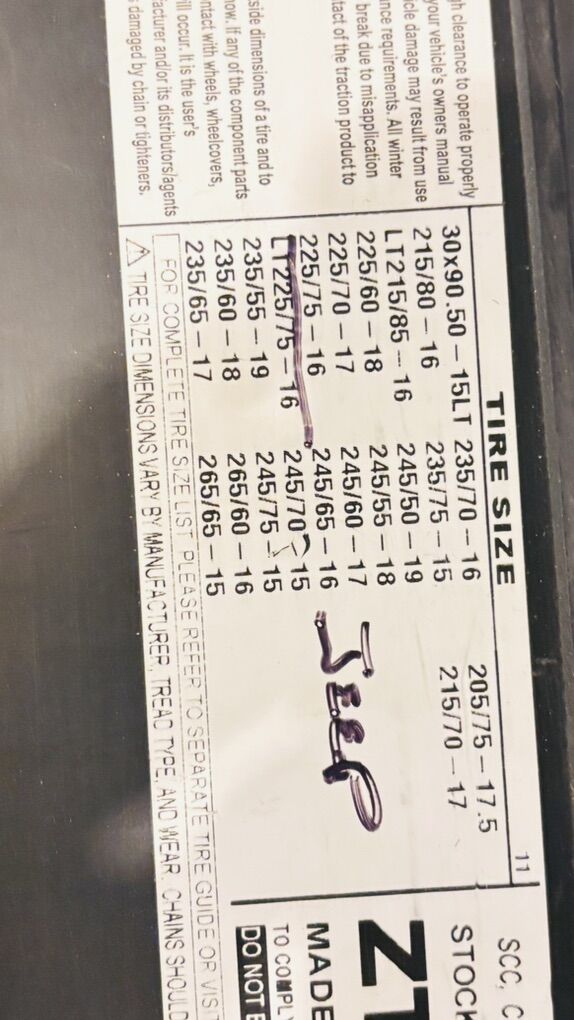 gh clearance to operate properly
your vehicle's owners manual
icle damage may result from use
nce requirements. All winter
break due to misapplication
tact of the traction product to
side dimensions of a tire and to
now. If any of the component parts
ntact with wheels, wheelcovers,
ill occur. It is the user's
facturer and/or its distributors/agents
damaged by chain or tighteners.
TIRE SIZE
11
30x90.50 – 15LT
215/80 – 16
LT215/85 – 16
225/60 – 18
225/70 – 17
225/75 – 16
LT225/75 – 16
235/55 – 19
235/60 – 18
235/65 – 17
235/70 – 16
235/75 – 15
245/50 – 19
245/55 – 18
245/60 – 17
245/65 – 16
245/70 – 15
245/75 – 15
265/60 – 16
265/65 – 15
205/75 – 17.5
215/70 – 17
JEEP
FOR COMPLETE TIRE SIZE LIST, PLEASE REFER TO SEPARATE TIRE GUIDE OR VISIT
⚠ TIRE SIZE DIMENSIONS VARY BY MANUFACTURER, TREAD TYPE, AND WEAR. CHAINS SHOULD
SCC, C
STOCK
ZT
MADE
TO COMPLY
DO NOT E